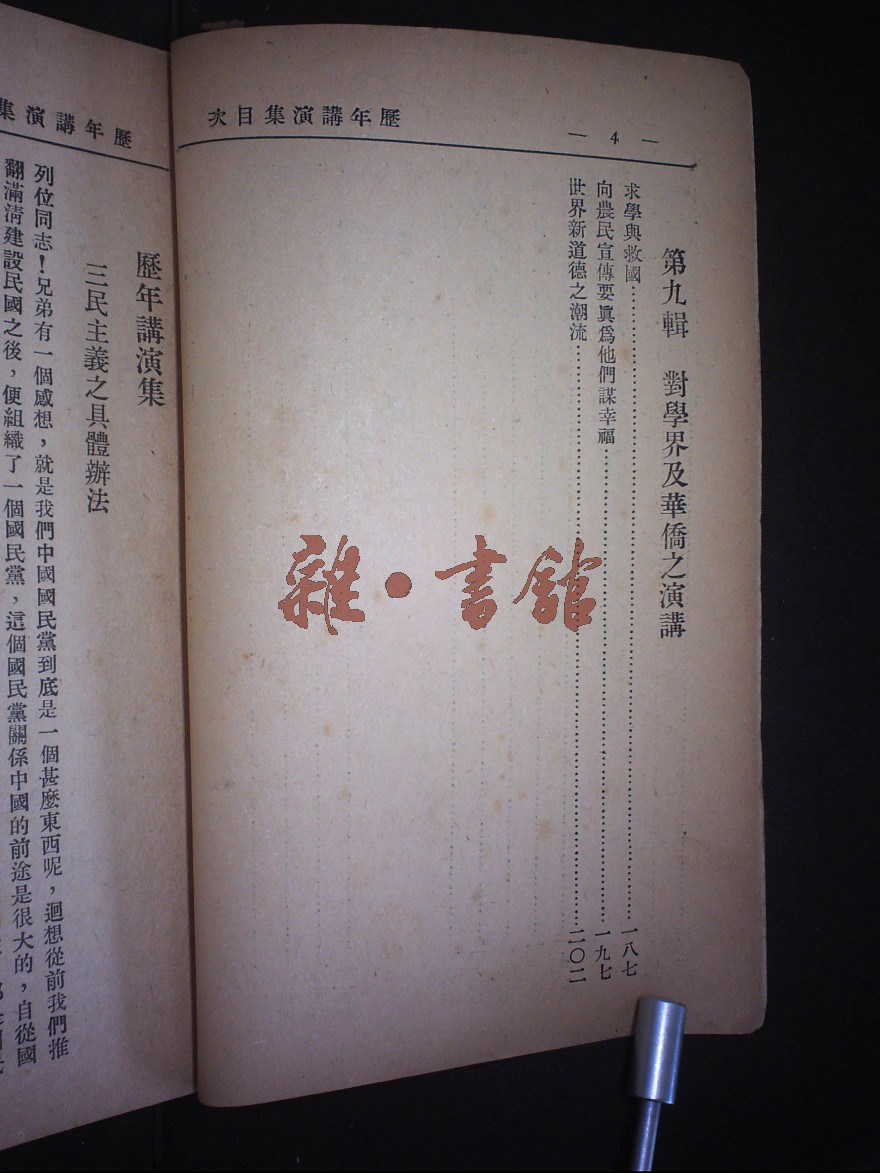 歷年講演集目次
— 4 —
第九輯 對學界及華僑之演講
求學與救國……一八七
向農民宣傳要眞爲他們謀幸福……一九七
世界新道德之潮流……二〇二
雜·書館
歷年講演集
歷年講演集
三民主義之具體辦法
列位同志！兄弟有一個感想，就是我們中國國民黨到底是一個甚麼東西呢，迴想從前我們推
翻滿淸建設民國之後，便組織了一個國民黨，這個國民黨關係中國的前途是很大的，自從國